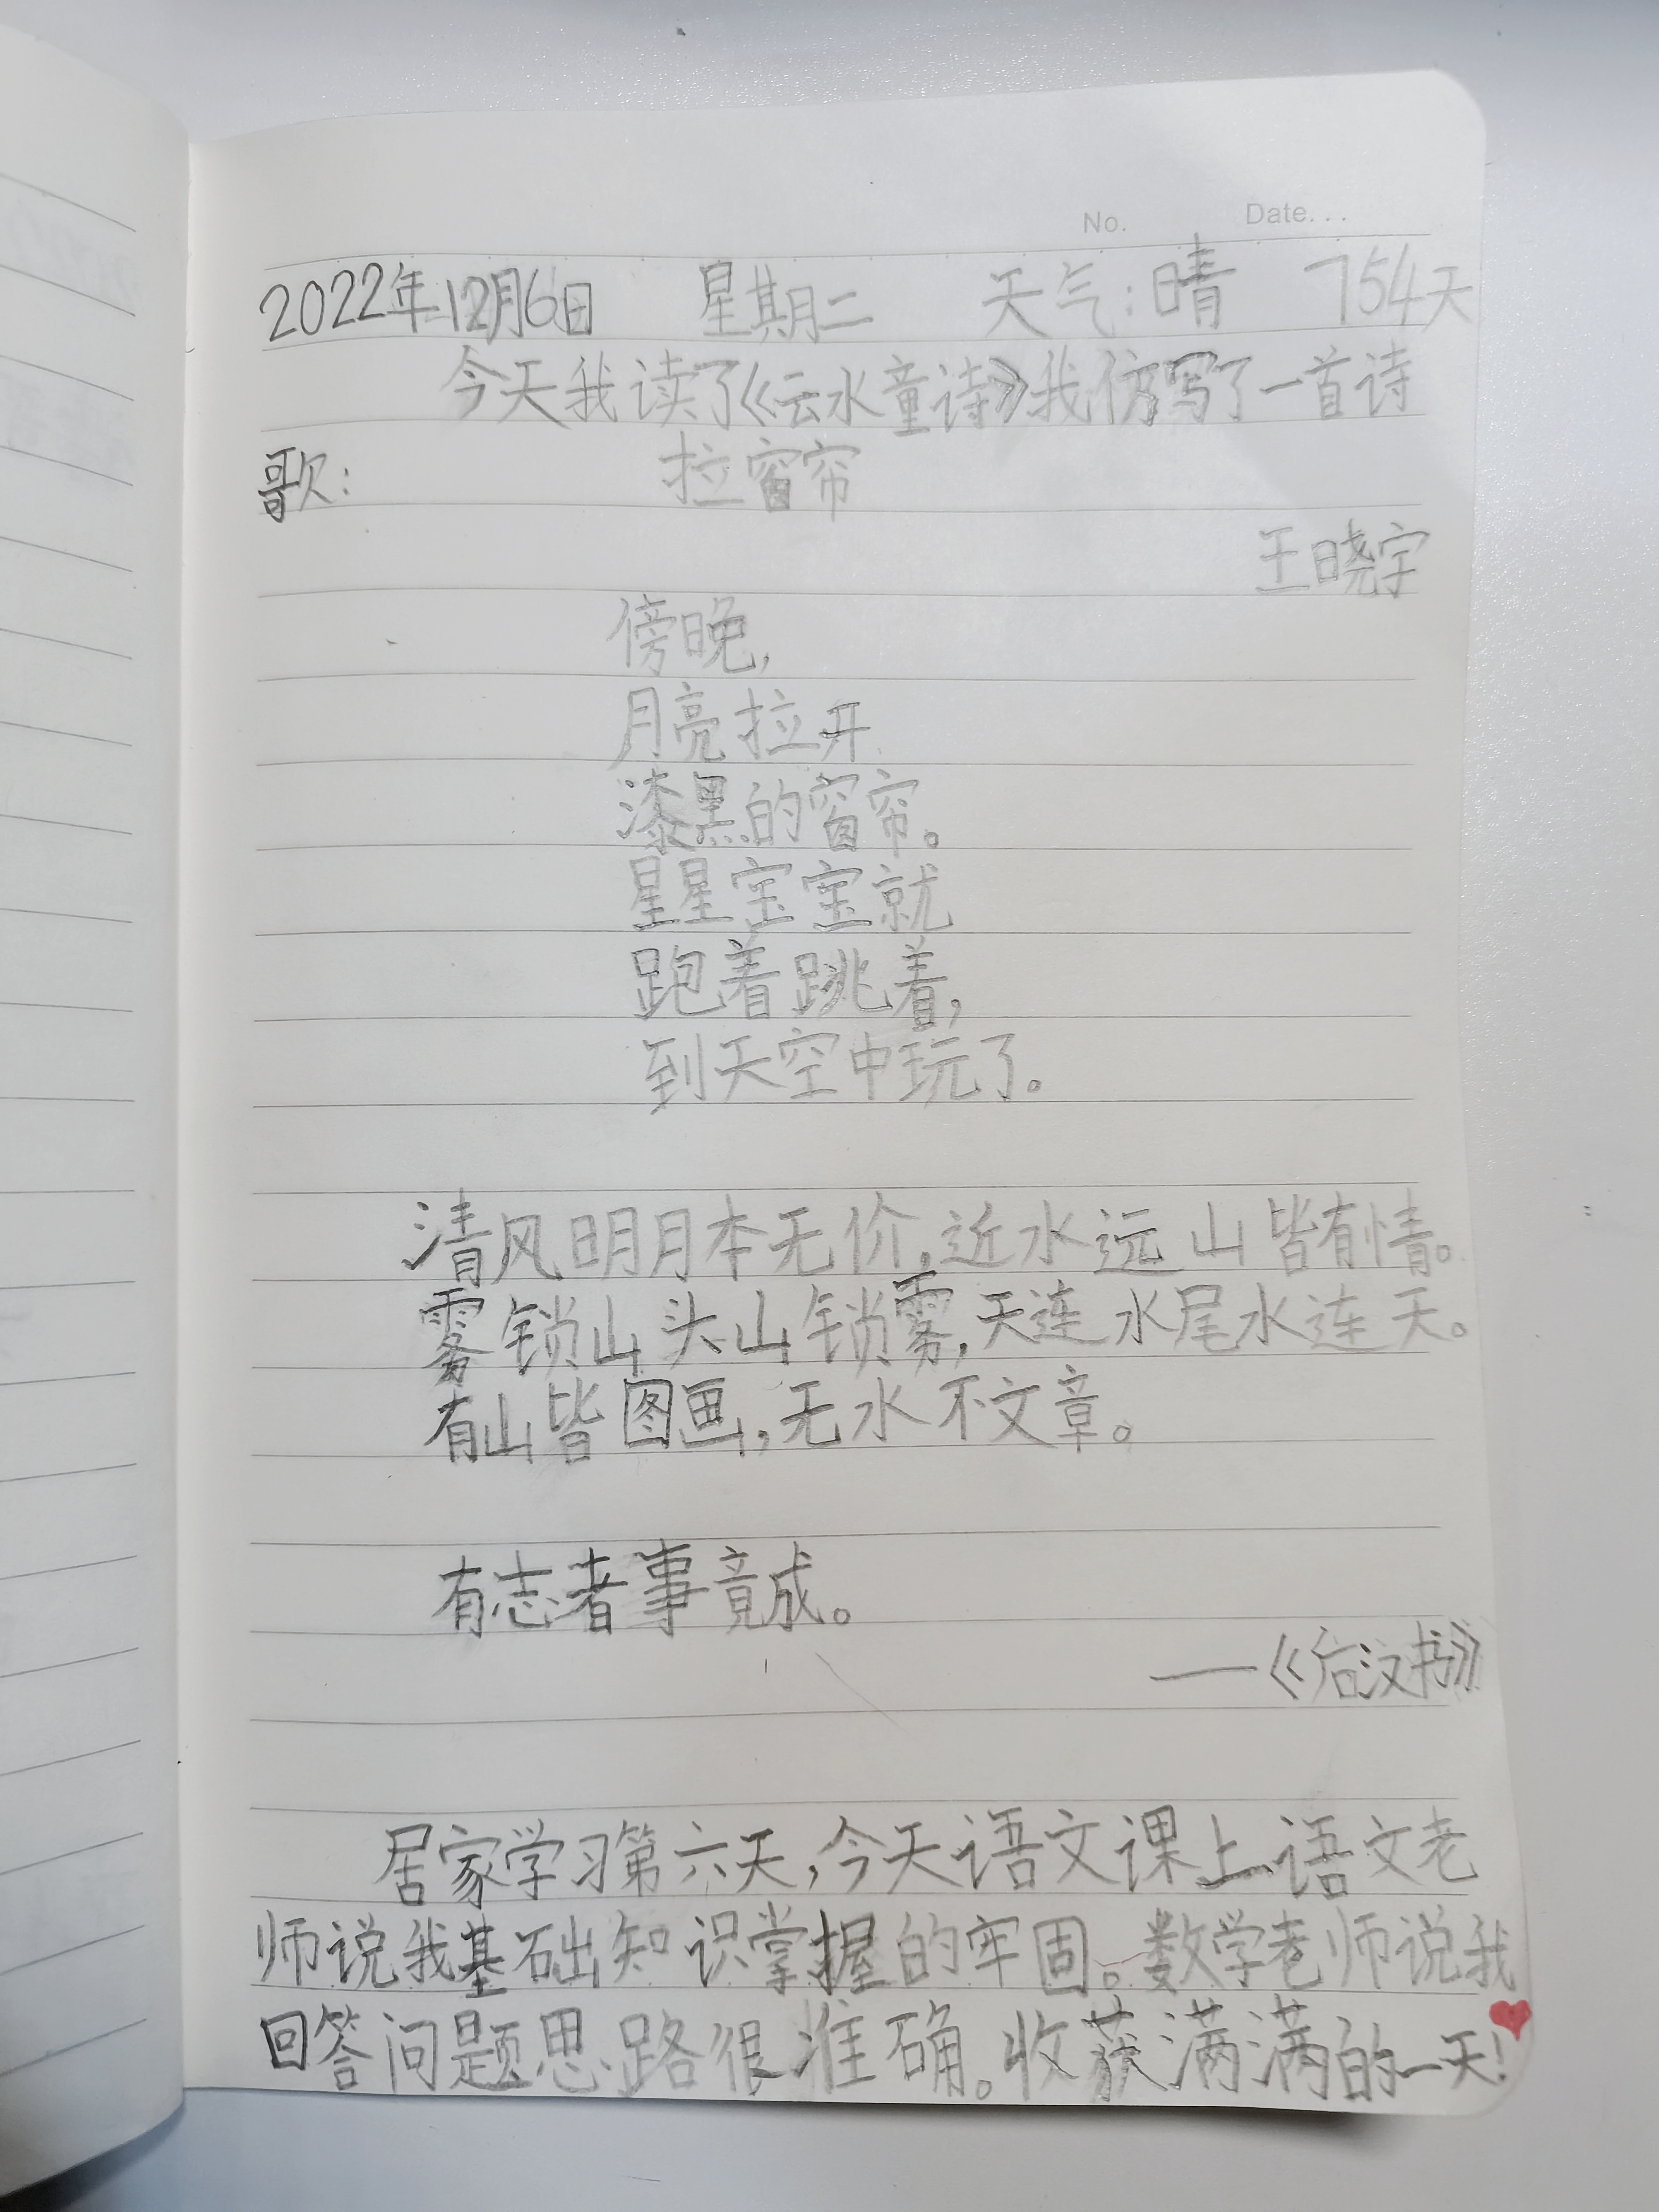 No. Date...
2022年12月6日 星期二 天气:晴 754天
今天我读了《云水童诗》我仿写了一首诗
歌: 拉窗帘
王晓宇
傍晚,
月亮拉开
漆黑的窗帘。
星星宝宝就
跑着跳着,
到天空中玩了。
清风明月本无价,近水远山皆有情。
雾锁山头山锁雾,天连水尾水连天。
有山皆图画,无水不文章。
有志者事竟成。
——《后汉书》
居家学习第六天,今天语文课上语文老
师说我基础知识掌握的牢固。数学老师说我
回答问题思路很准确。收获满满的一天!